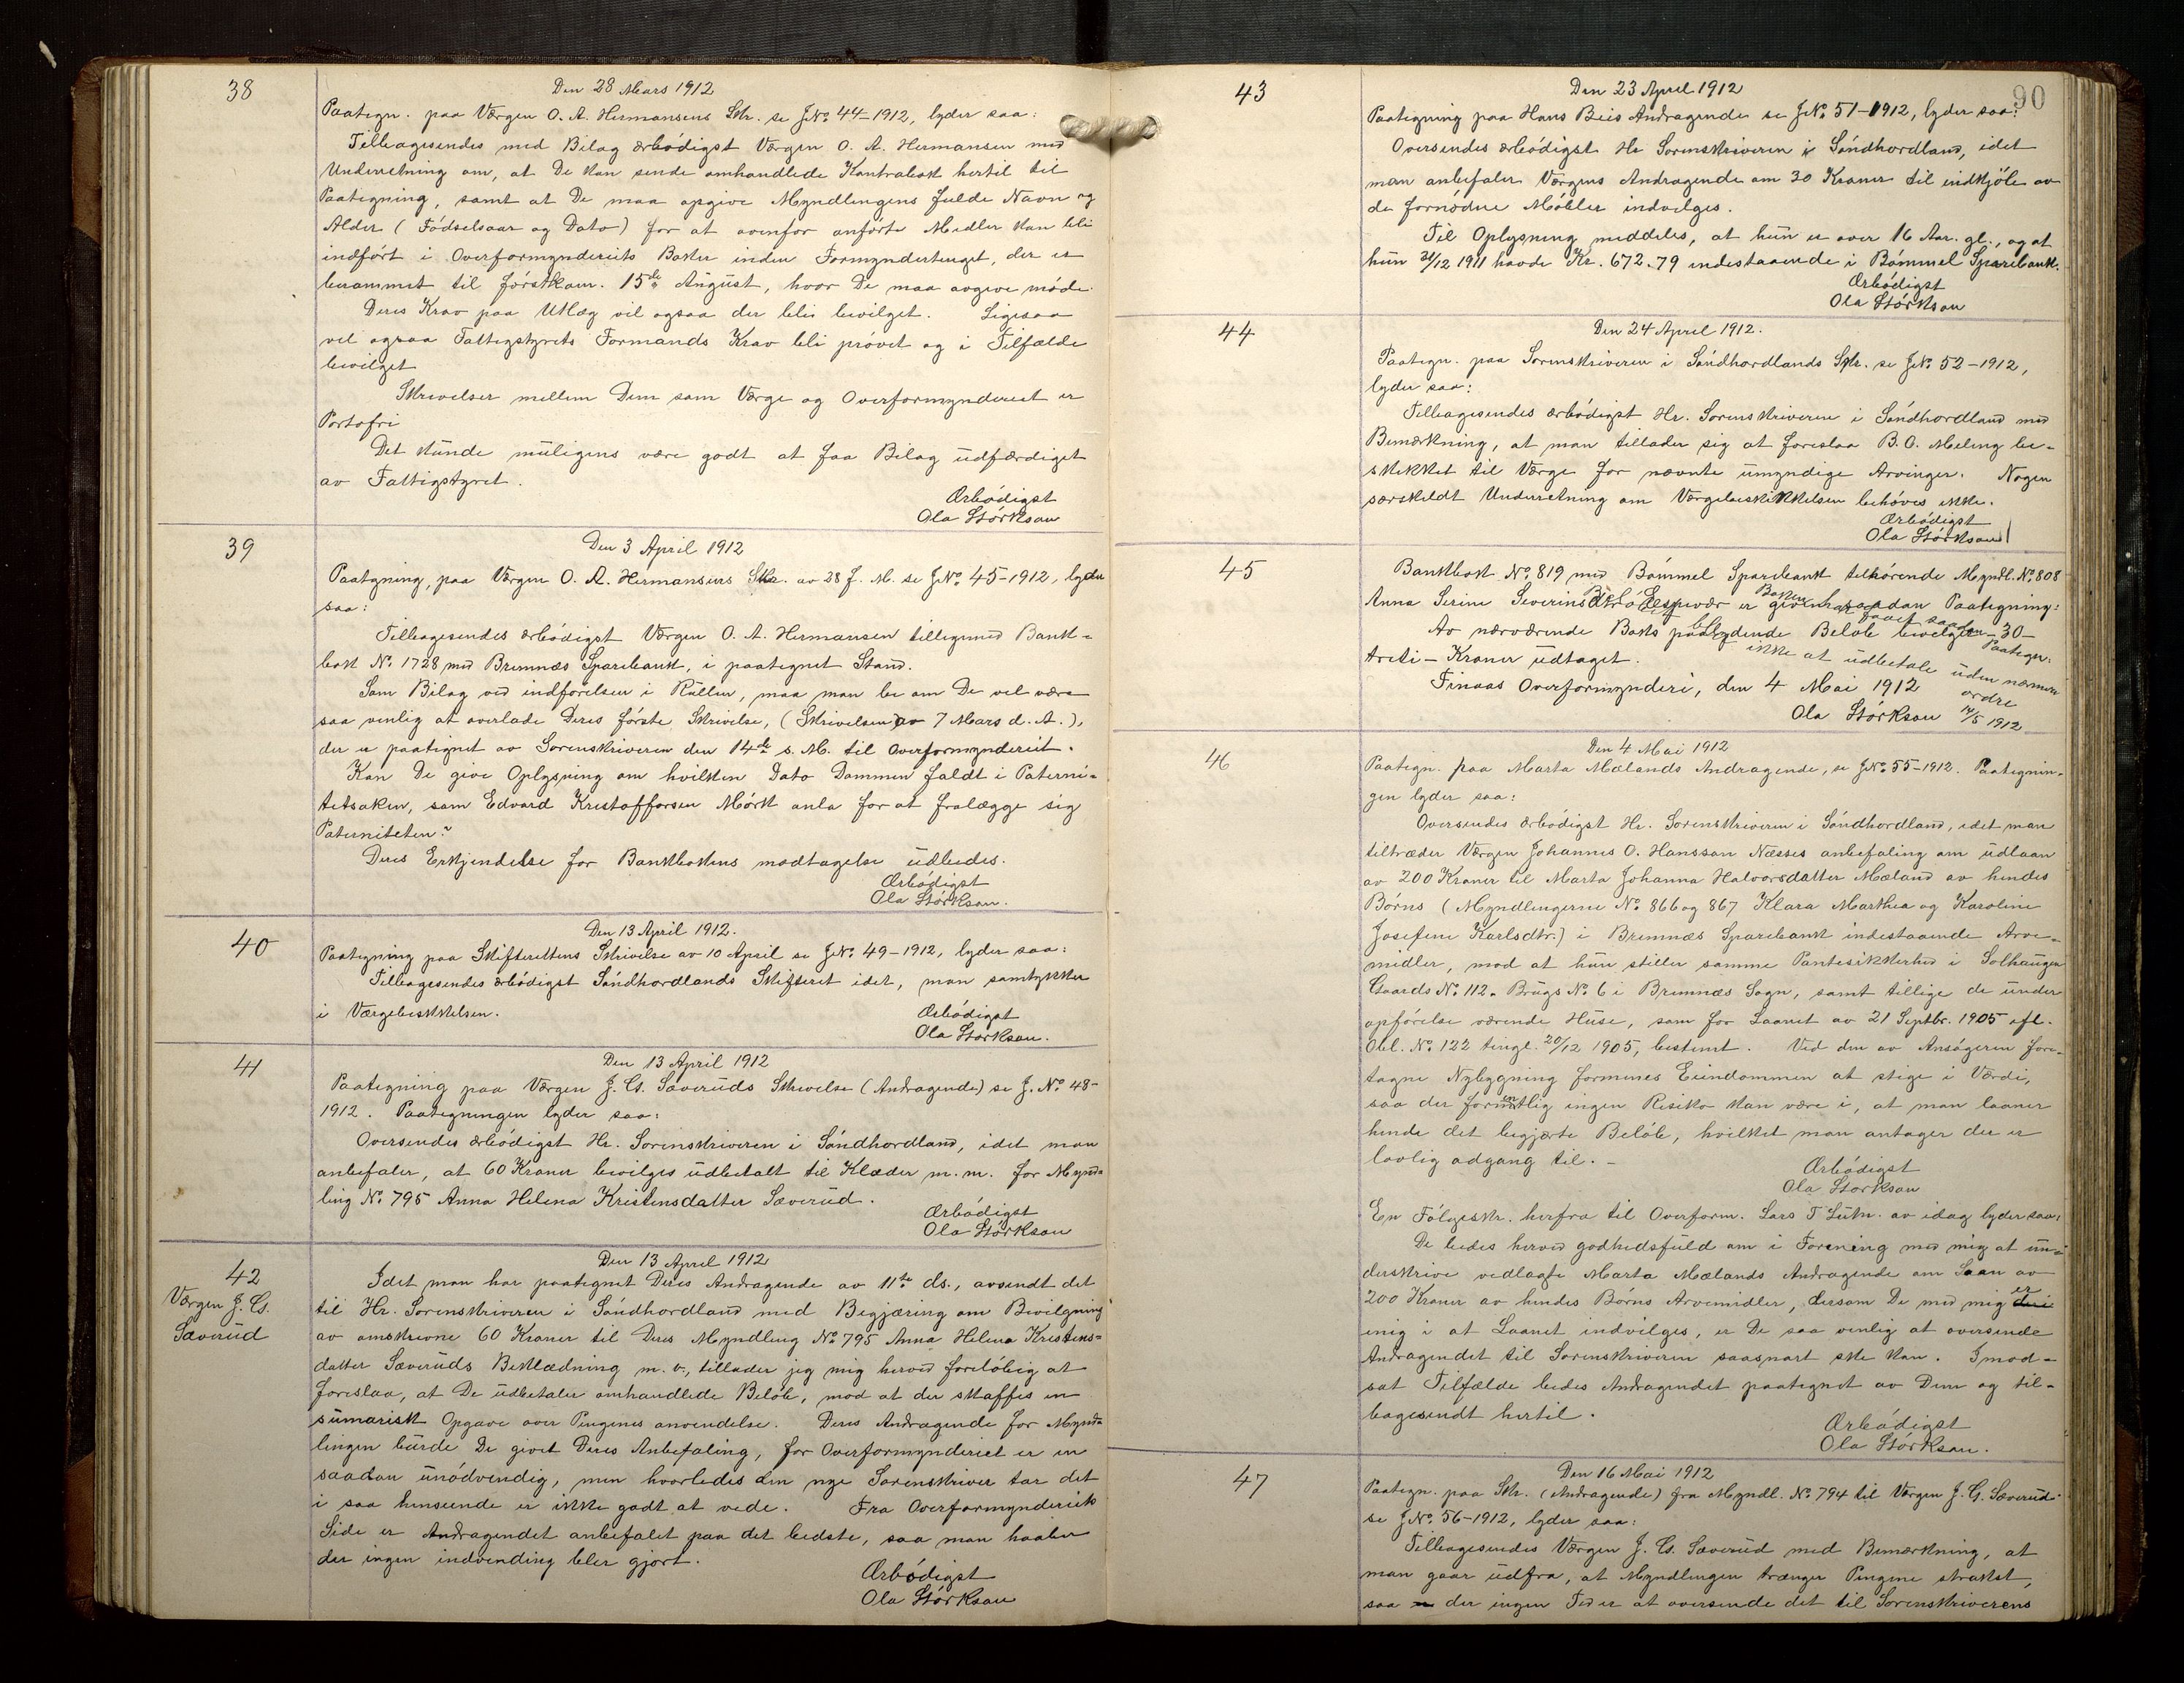 38
Den 28 Mars 1912
Paategn. paa Værgen O. A. Hermansens Skr. se J.No. 44-1912, lyder saa:
Tilbagesendes med Bilag ærbødigst Værgen O. A. Hermansen med
Underretning om, at De kan sende omhandlede Kontrabok hertil til
Paategning, samt at De maa opgive Myndlingens fulde Navn og
Alder (Fødselsaar og Dato) for at ovenfor anførte Midler kan bli
indført i Overformynderiets Bøker inden Formyndertinget, der er
berammet til førstkom. 15de August, hvor De maa avgive møde.
Deres Krav paa Utlæg vil ogsaa der bli bevilget. Ligesaa
vil ogsaa Fattigstyrets Formands Krav bli prøvet og i Tilfælde
bevilget
Skrivelser mellem Dem som Værge og Overformynderiet er
Portofri
Det kunde muligens være godt at faa Bilag udfærdiget
av Fattigstyret.
Ærbødigst
Ola Størkson
39
Den 3 April 1912
Paategning, paa Værgen O. A. Hermansens Skr. av 28 f. M. se J.No. 45-1912, lyder
saa:
Tilbagesendes ærbødigst Værgen O. A. Hermansen tillegemed Bank-
bok No. 1728 med Bremnæs Sparebank, i paategnet Stand.
Som Bilag ved indførelsen i Rullen, maa man be om De vil være
saa venlig at overlade Deres første Skrivelse, (Skrivelsen av 7 Mars d. A.),
der er paategnet av Sorenskriveren den 14de s. M. til Overformynderiet.
Kan De give Oplysning om hvilken Dato Dommen faldt i Paterni-
tetsaken, som Edvard Kristoffersen Mørk anla for at fralægge sig
Paterniteten?
Deres Erkjendelse for Bankbokens modtagelse udbedes.
Ærbødigst
Ola Størkson.
40
Den 13 April 1912.
Paategning paa Skifterettens Skrivelse av 10 April se J.No. 49-1912, lyder saa:
Tilbagesendes ærbødigst Søndhordlands Skifteret idet, man samtykker
i Værgebeskikkelsen.
Ærbødigst
Ola Størkson.
41
Den 13 April 1912
Paategning paa Værgen J. G. Sæveruds Skrivelse (Andragende) se J. No. 48-
1912. Paategningen lyder saa:
Oversendes ærbødigst Hr. Sorenskriveren i Søndhordland, idet man
anbefaler, at 60 Kroner bevilges udbetalt til Klæder m. m. for Mynd-
ling No. 795 Anna Helena Kristensdatter Sæverud.
Ærbødigst
Ola Størkson
42
Værgen J. G.
Sæverud
Den 13 April 1912
Idet man har paategnet Deres Andragende av 11te ds., avsendt det
til Hr. Sorenskriveren i Søndhordland med Begjæring om Bevilgning
av omskrevne 60 Kroner til Deres Myndling No. 795 Anna Helena Kristens-
datter Sæveruds Beklædning m. v., tillader jeg mig herved foreløbig at
foreslaa, at De udbetaler omhandlede Beløb, mod at der skaffes en
sumarisk Opgave over Pengenes anvendelse. Deres Andragende for Mynd-
lingen burde De givet Deres Anbefaling, for Overformynderiet er en
saadan unødvendig, men hvorledes den nye Sorenskriver tar det
i saa henseende er ikke godt at vide. Fra Overformynderiets
Side er Andragendet anbefalet paa det bedste, saa man haaber
der ingen indvending bler gjort.
Ærbødigst
Ola Størkson
90
43
Den 23 April 1912
Paategning paa Hans Beis Andragende se J.No. 51-1912, lyder saa:
Oversendes ærbødigst Hr Sorenskriveren i Søndhordland, idet
man anbefaler Værgens Andragende om 30 Kroner til indkjøb av
de fornødne Møbler indvilges.
Til Oplysning meddeles, at hun er over 16 Aar. gl., og at
hun 31/12 1911 havde Kr. 672.79 indestaaende i Bømmel Sparebank.
Ærbødigst
Ola Størkson
44
Den 24 April 1912.
Paategn. paa Sorenskriveren i Søndhordlands Skr. se J.No. 52-1912,
lyder saa:
Tilbagesendes ærbødigst Hr. Sorenskriveren i Søndhordland med
Bemærkning, at man tillader sig at foreslaa B. O. Meling be-
skikket til Værge for nævnte umyndige Arvinger. Nogen
særskildt Underretning om Værgebeskikkelsen behøves ikke.
Ærbødigst
Ola Størkson
45
Bankbok No. 819 med Bømmel Sparebank tilhørende Myndl. No. 808
Anna Serine Severinsdtr Espevær er given saadan Paategning:
Av nærværende Boks paalydende Beløb bevilges -30-
treti- Kroner udtaget.
Boken har faaet saadan Paategn:
ikke at udbetale uden nærmere
ordre
14/5 1912
Finaas Overformynderi, den 4 Mai 1912
Ola Størkson
46
Den 4 Mai 1912
Paategn. paa Marta Mælands Andragende, se J.No. 55-1912. Paategnin-
gen lyder saa:
Oversendes ærbødigst Hr. Sorenskriveren i Søndhordland, idet man
tiltræder Værgen Johannes O. Hansson Næsses anbefaling om udlaan
av 200 Kroner til Marta Johanna Halvorsdatter Mæland av hendes
Børns (Myndlingerne No. 866 og 867 Klara Marthea og Karoline
Josefine Karlsdtr.) i Bremnæs Sparebank indestaaende Arve-
midler, mod at hun stiller samme Pantesikkerhed i Solhaugen
Gaards No. 112. Brugs No. 6 i Bremnæs Sogn, samt tillige de under
opførelse værende Huse, som for Laanet av 21 Septbr. 1905 efl.
Obl. No. 122 tingl. 20/12 1905, bestemt. Ved den av Ansøgeren fore-
tagne Nybygning formenes Eiendommen at stige i Værdi,
saa der formentlig ingen Risiko kan være i, at man laaner
hende det begjærte Beløb, hvilket man antager der er
lovlig adgang til. -
Ærbødigst
Ola Størkson
En Følgeskr. herfra til Overform. Lars T Lütn. av idag lyder saa:
De bedes herved godhedsfuld om i Forening med mig at un-
derskrive vedlagte Marta Mælands Andragende om Laan av
200 Kroner av hendes Børns Arvemidler, dersom De med mig er
enig i at Laanet indvilges, er De saa venlig at oversende
Andragendet til Sorenskriveren saasnart ske kan. I mod-
sat Tilfælde bedes Andragendet paategnet av Dem og til-
bagesendt hertil.
Ærbødigst
Ola Størkson.
47
Den 16 Mai 1912
Paategn. paa Skr. (Andragende) fra Myndl. No. 794 til Værgen J. G. Sæverud
se J.No. 56-1912, lyder saa:
Tilbagesendes Værgen J. G. Sæverud med Bemærkning, at
man gaar udfra, at Myndlingen trænger Pengene strakst,
saa der ingen Tid er at oversende det til Sorenskriverens